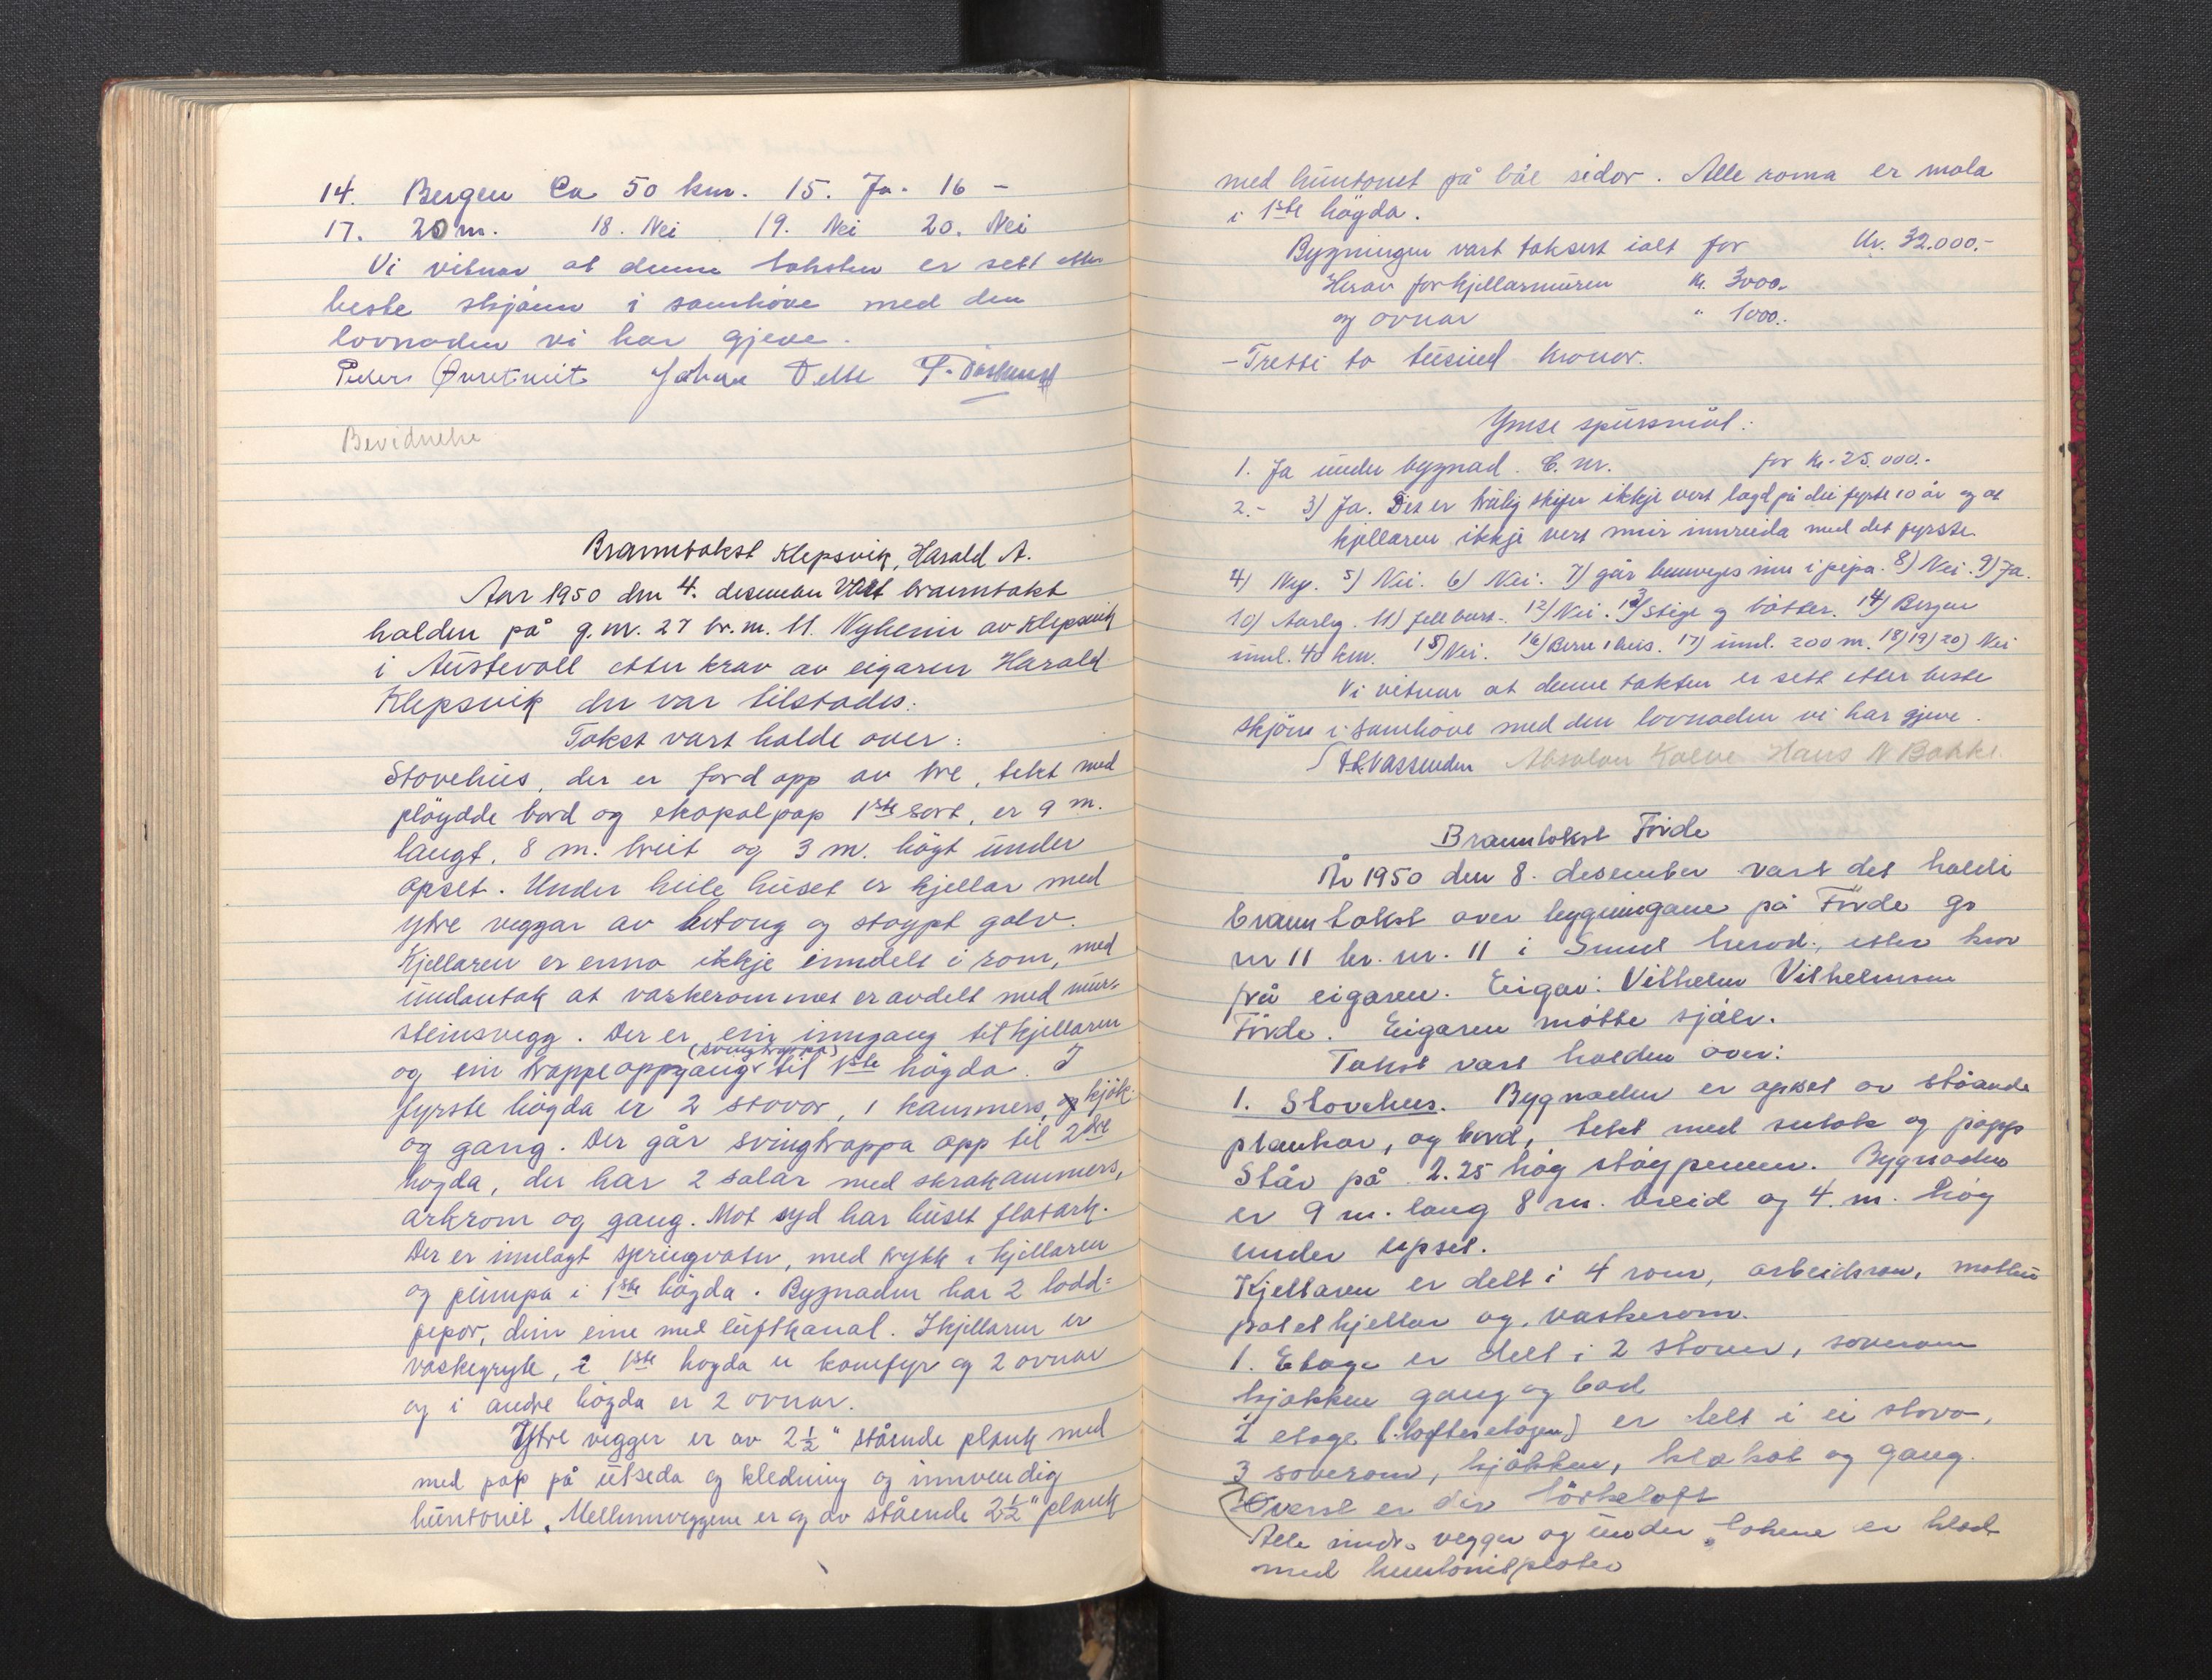 14. Bergen Ca 50 km. 15. Ja. 16 –
17. 20 m. 18. Nei 19. Nei 20. Nei
Vi vitnar at denne taksten er sett etter
beste skjønn i samhöve med den
lovnaden vi har gjeve.
Peder Øvretveit Johan
Bevidnelse
Branntakst Klepsvik, Harald A.
Aar 1950 den 4. desember vart branntakst
halden på g.nr. 27 br.nr. 11. Nyheim av Klepsvik
i Austevoll etter krav av eigaren Harald
Klepsvik der var tilstades.
Takst vart halde over:
Stovehus, der er ford opp av tre, tekt med
pløygde bord og ekopalpap 1ste sort, er 9 m.
langt, 8 m. breit og 3 m. högt under
opset. Under heile huset er kjellar med
ytre veggar av betong og stöypt golv.
Kjellaren er enno ikkje inndelt i rom, med
undantak at vaskerommet er avdelt med mur-
steinsvegg. Der er ein inngang til kjellaren
og ein trappeoppgang (svingtrappa) til 1ste högda. I
fyrste högda er 2 stovor, 1 kammers, og kjök.
og gang. Der går svingtrappa opp til 2dre
högda, der har 2 salar med skrakammers,
arkrom og gang. Mot syd har huset flatark.
Der er innlagt springvatn, med trykk i kjellaren
og pumpa i 1ste högda. Bygnaden har 2 lodd-
pipor, dein eine med luftkanal. I kjellaren er
vaskegryte, i 1ste högda er komfyr og 2 ovnar
og i andre högda er 2 ovnar.
Ytre vegger er av 2½" stående plank med
med pap på utseda og kledning og innvendig
huntonit. Mellomveggene er og av stående 2½" plank
med huntonit på båe sidor. Alle roma er mala
i 1ste högda.
Bygningen vart taksert ialt for Kr. 32.000.-
Herav for kjellarmuren Kr. 3000.
og ovnar " 1000.
– Tretti to tusund kronor.
Ymse spursmål:
1. Ja under bygnad. C. nr. for kr. 25.000.-
2. - 3) Ja. Det er truleg skifer ikkje vert lagd på dei fyrste 10 år og at
kjellaren ikkje vert meir innreida med det fyrste.
4) Nye. 5) Nei. 6) Nei. 7) går beinveges inn i pipa. 8) Nei. 9) Ja.
10) Aarleg. 11) fell burt. 12) Nei. 13) Stige og bötter. 14) Bergen
uml. 40 km. 15) Nei. 16) Berre 1 hus. 17) uml. 200 m. 18) 19) 20) Nei
Vi vitnar at denne taksten er sett etter beste
skjönn i samhöve med den lovnaden vi har gjeve.
Vassenden Absalon Kalve Hans N Bakke.
Branntakst Förde
År 1950 den 8. desember vart det haldi
branntakst over bygningane på Förde gr
nr 11 br. nr. 11 i Sund herad, etter krav
frå eigaren. Eigar: Vilhelm Vilhelmsen
Förde. Eigaren møtte sjølv.
Takst vart halden over:
1. Stovehus. Bygnaden er opset av ståande
plankar, og bord, tekt med sutak og papp
Står på 2.25 hög Bygnaden
er 9 m. lang 8 m. breid og 4. m. hög
under upset.
Kjellaren er delt i 4 rom, arbeidsrom,
potetkjellar og vaskerom.
1. Etage er delt i 2 stover, soverom
kjøkken gang og bad
2 etage (lofteetagen) er delt i ei stova,
3 soverom, kjøkken, og gang.
Øverst er der törkeloft
Alle indr. vegger og under takene er kled
med huntonitplater